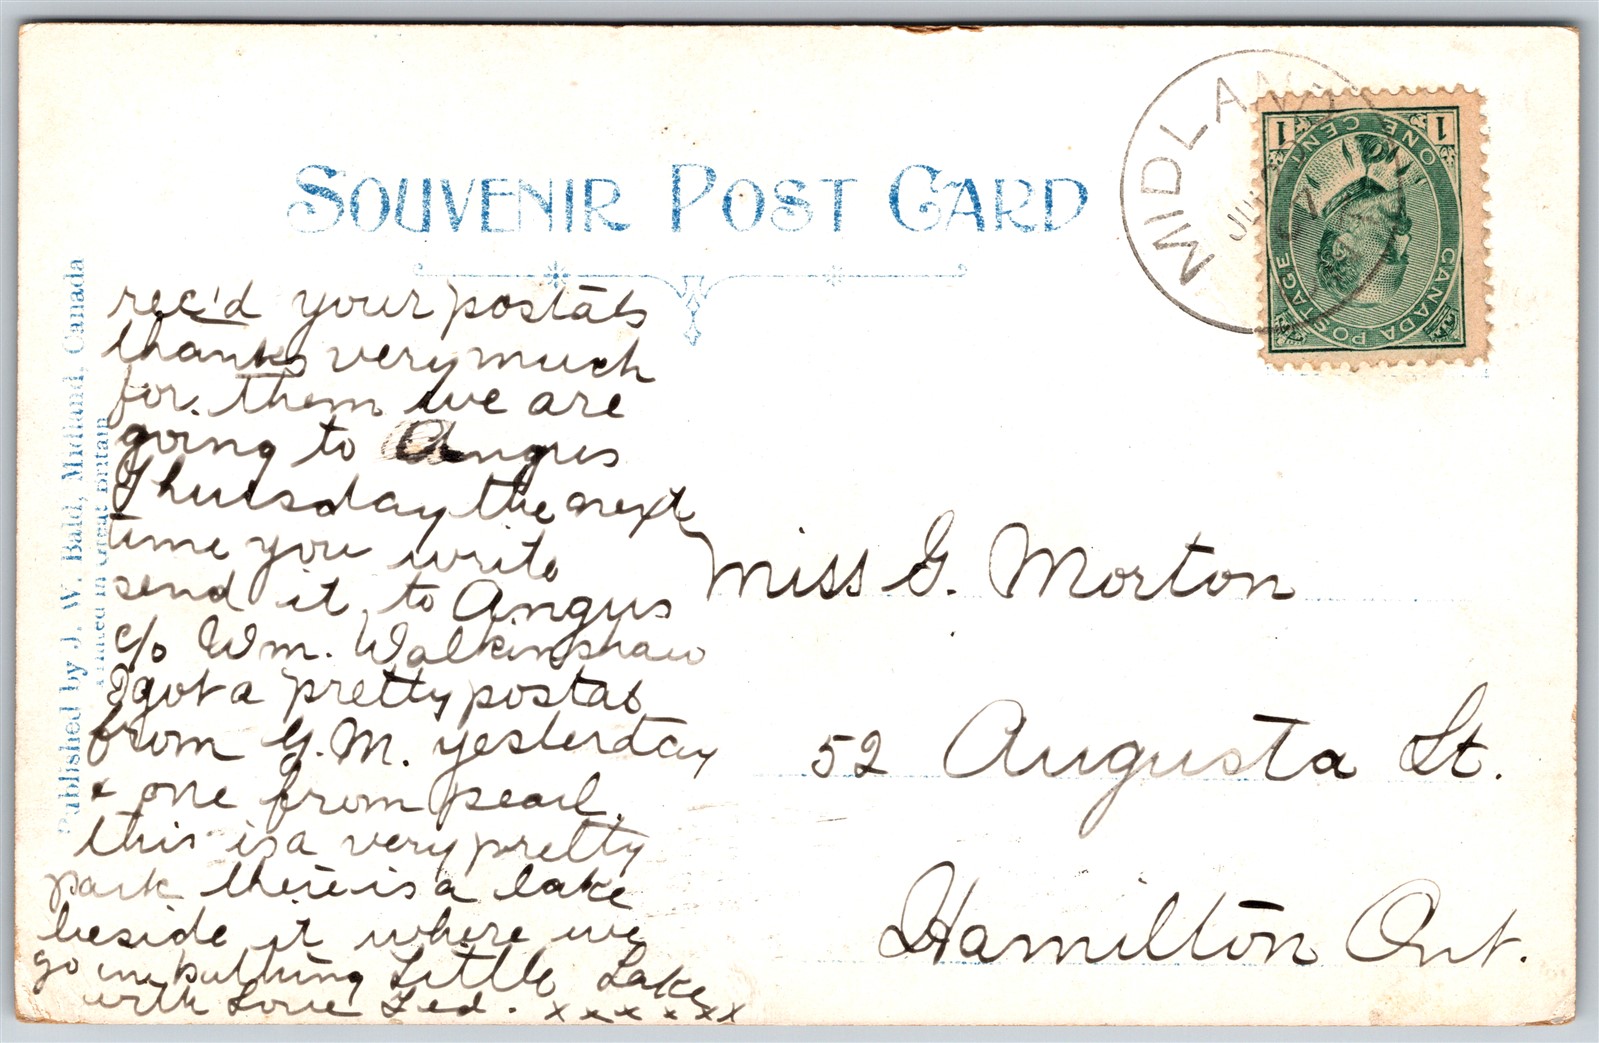 SOUVENIR POST CARD
MIDLAND
JU
CANADA POSTAGE
ONE CENT
1 1
Published by J. W. Bald, Midland, Canada
Printed in Great Britain
rec'd your postals
thanks very much
for them we are
going to Angus
Thursday the next
time you write
send it to Angus
c/o Wm. Walkinshaw
I got a pretty postal
from G. M. yesterday
& one from pearl.
this is a very pretty
park there is a lake
beside it where we
go in bathing Little Lake
with Love Zed. x x x x x x
Miss G. Morton
52 Augusta St.
Hamilton Ont.